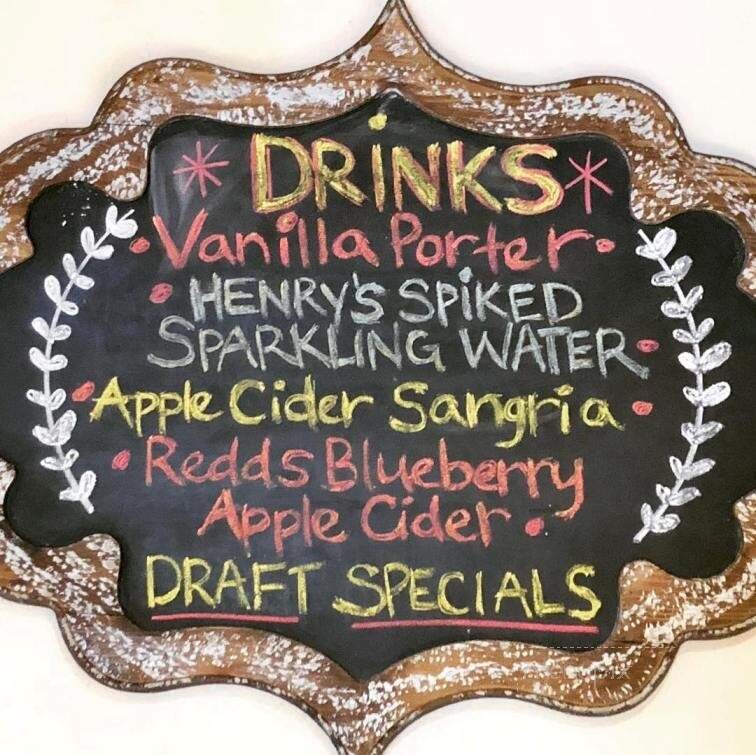 * DRINKS *
• Vanilla Porter •
• HENRY'S SPIKED
SPARKLING WATER •
• Apple Cider Sangria •
• Redds Blueberry
Apple Cider •
DRAFT SPECIALS